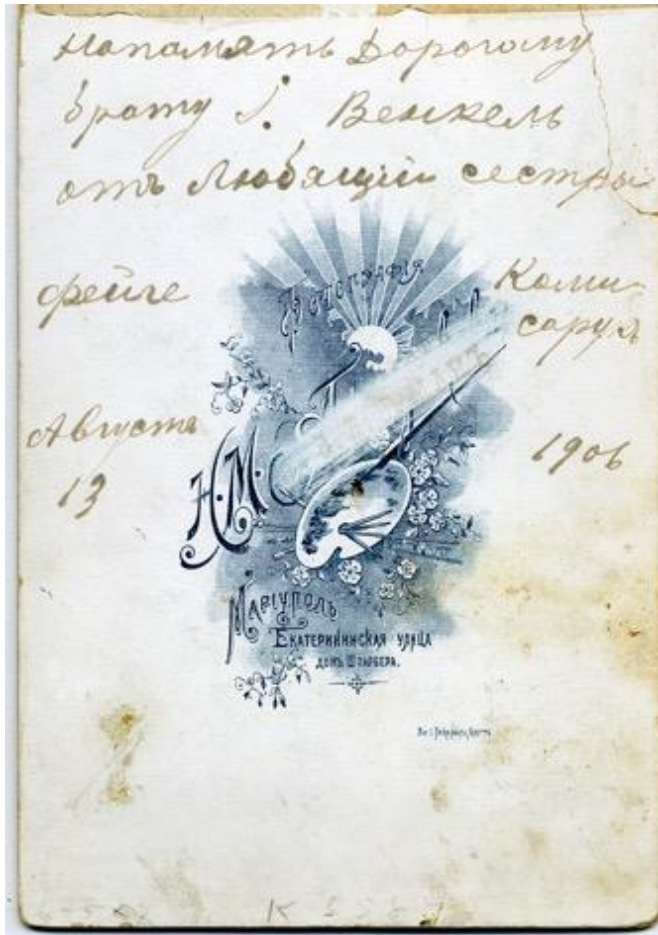 Напамять Дорогому
брату І. Венкель
отъ Любящей сестры
фейге Коми-
сарук
Августа
13 1906
Фотографія
Н.М.
Маріуполь
Екатерининская улица
домъ Шпарбера.